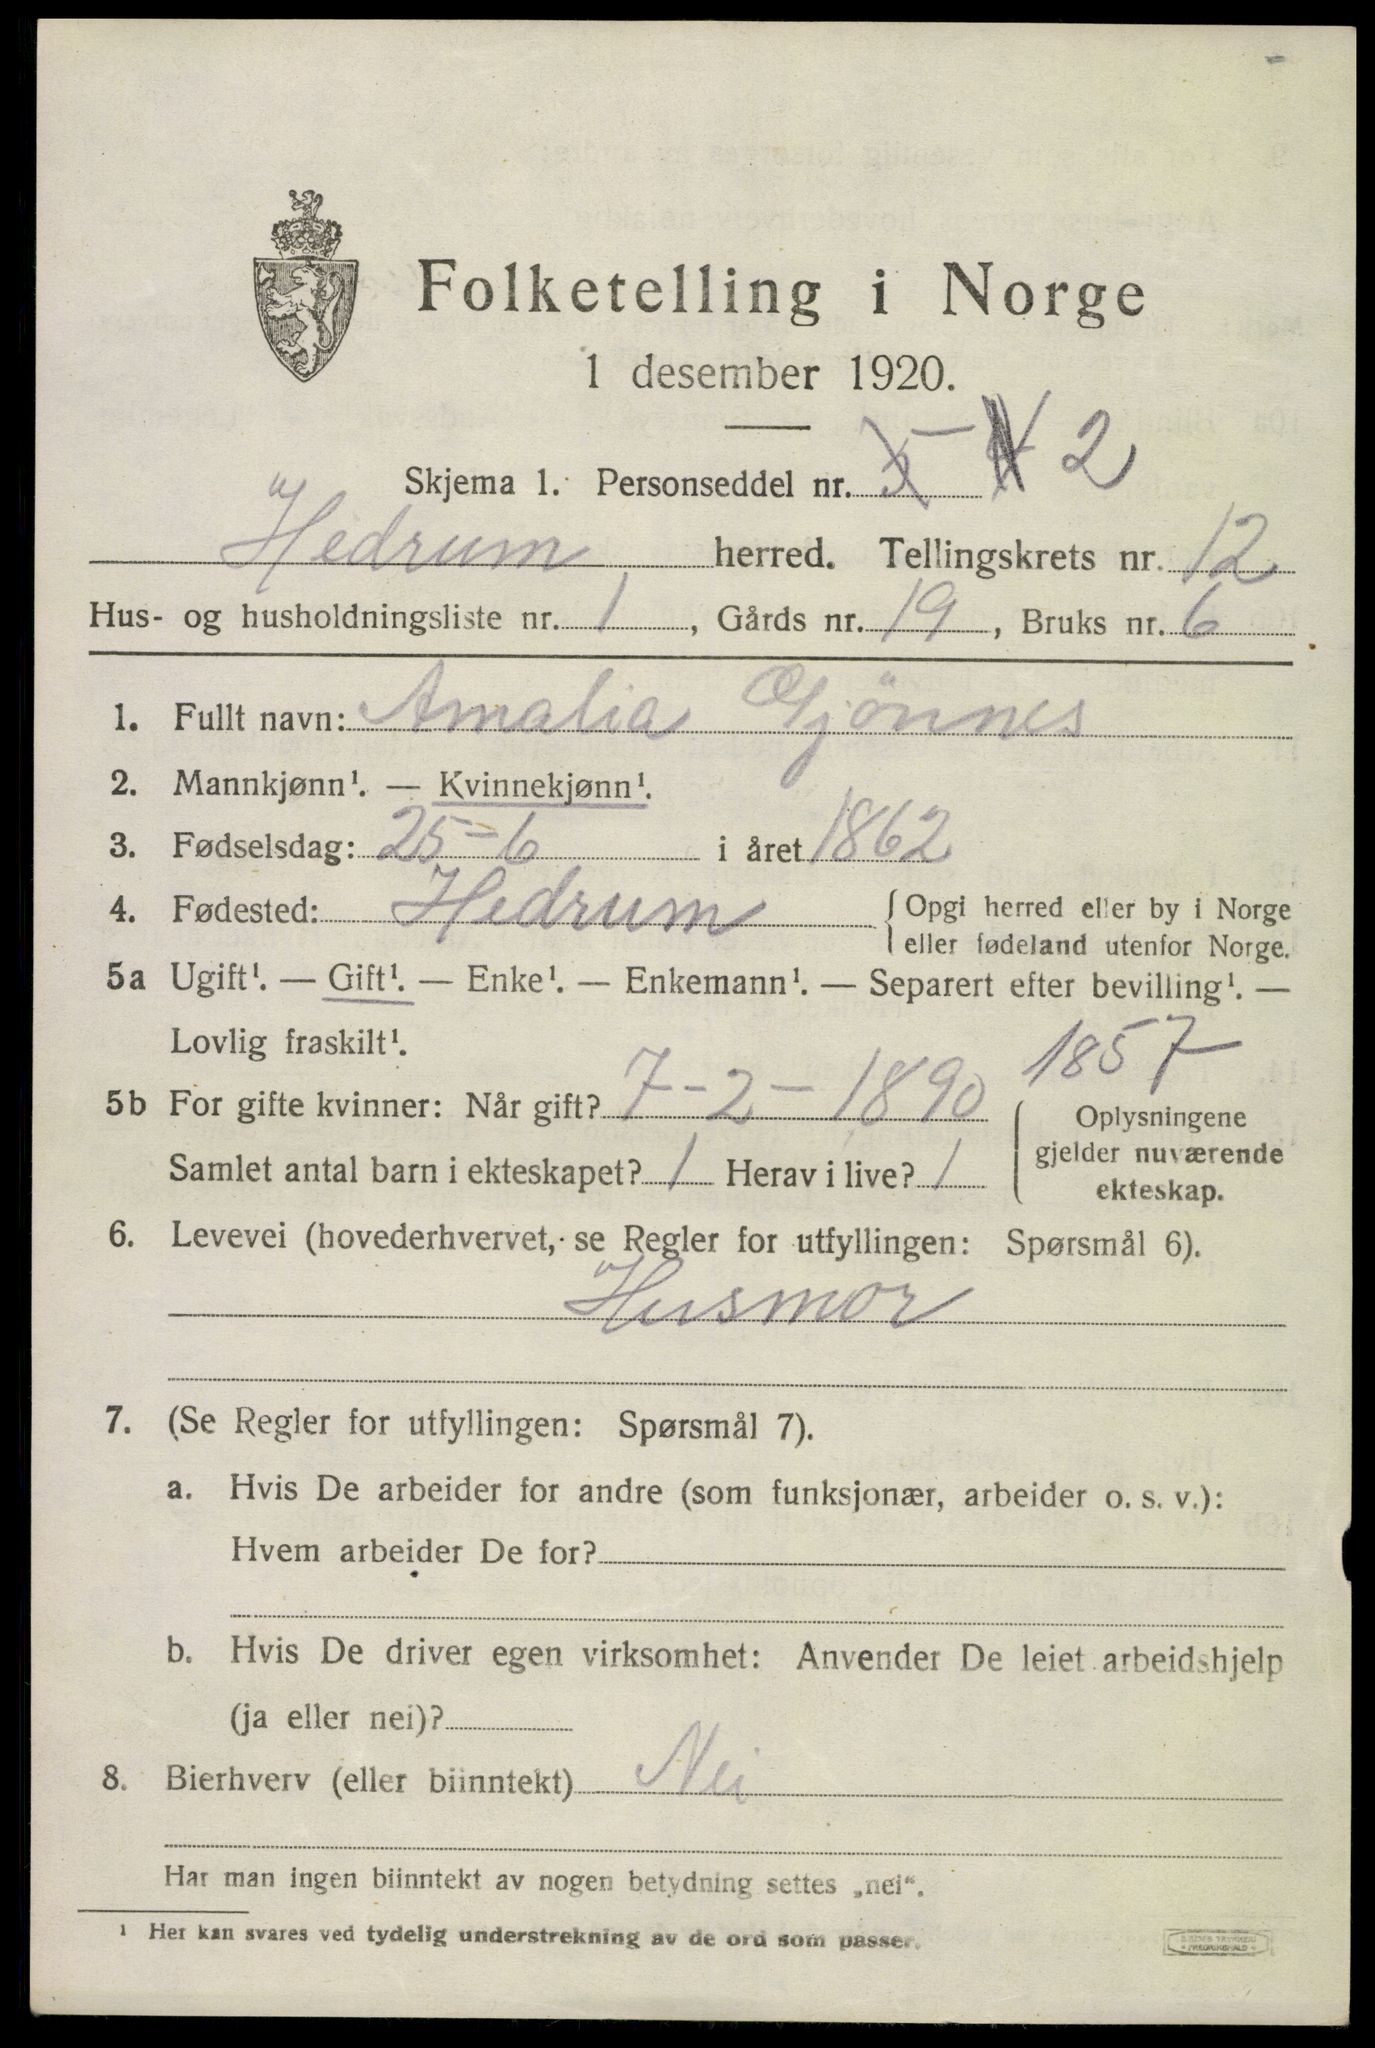 Folketelling i Norge
1 desember 1920.
Skjema 1. Personseddel nr. 5 4 2
Hedrum herred. Tellingskrets nr. 12
Hus- og husholdningsliste nr. 1, Gårds nr. 19, Bruks nr. 6
1. Fullt navn: Amalia Gjönnes
2. Mannkjønn¹. — Kvinnekjønn¹.
3. Fødselsdag: 25-6 i året 1862
4. Fødested: Hedrum { Opgi herred eller by i Norge
eller fødeland utenfor Norge.
5a Ugift¹. — Gift¹. — Enke¹. — Enkemann¹. — Separert efter bevilling¹. —
Lovlig fraskilt¹.
1857
5b For gifte kvinner: Når gift? 7-2-1890
Samlet antal barn i ekteskapet? 1 Herav i live? 1
Oplysningene
gjelder nuværende
ekteskap.
6. Levevei (hovederhvervet, se Regler for utfyllingen: Spørsmål 6).
Husmor
7. (Se Regler for utfyllingen: Spørsmål 7).
a. Hvis De arbeider for andre (som funksjonær, arbeider o. s. v.):
Hvem arbeider De for?
b. Hvis De driver egen virksomhet: Anvender De leiet arbeidshjelp
(ja eller nei)?
8. Bierhverv (eller biinntekt) Nei
Har man ingen biinntekt av nogen betydning settes „nei“.
¹ Her kan svares ved tydelig understrekning av de ord som passer.